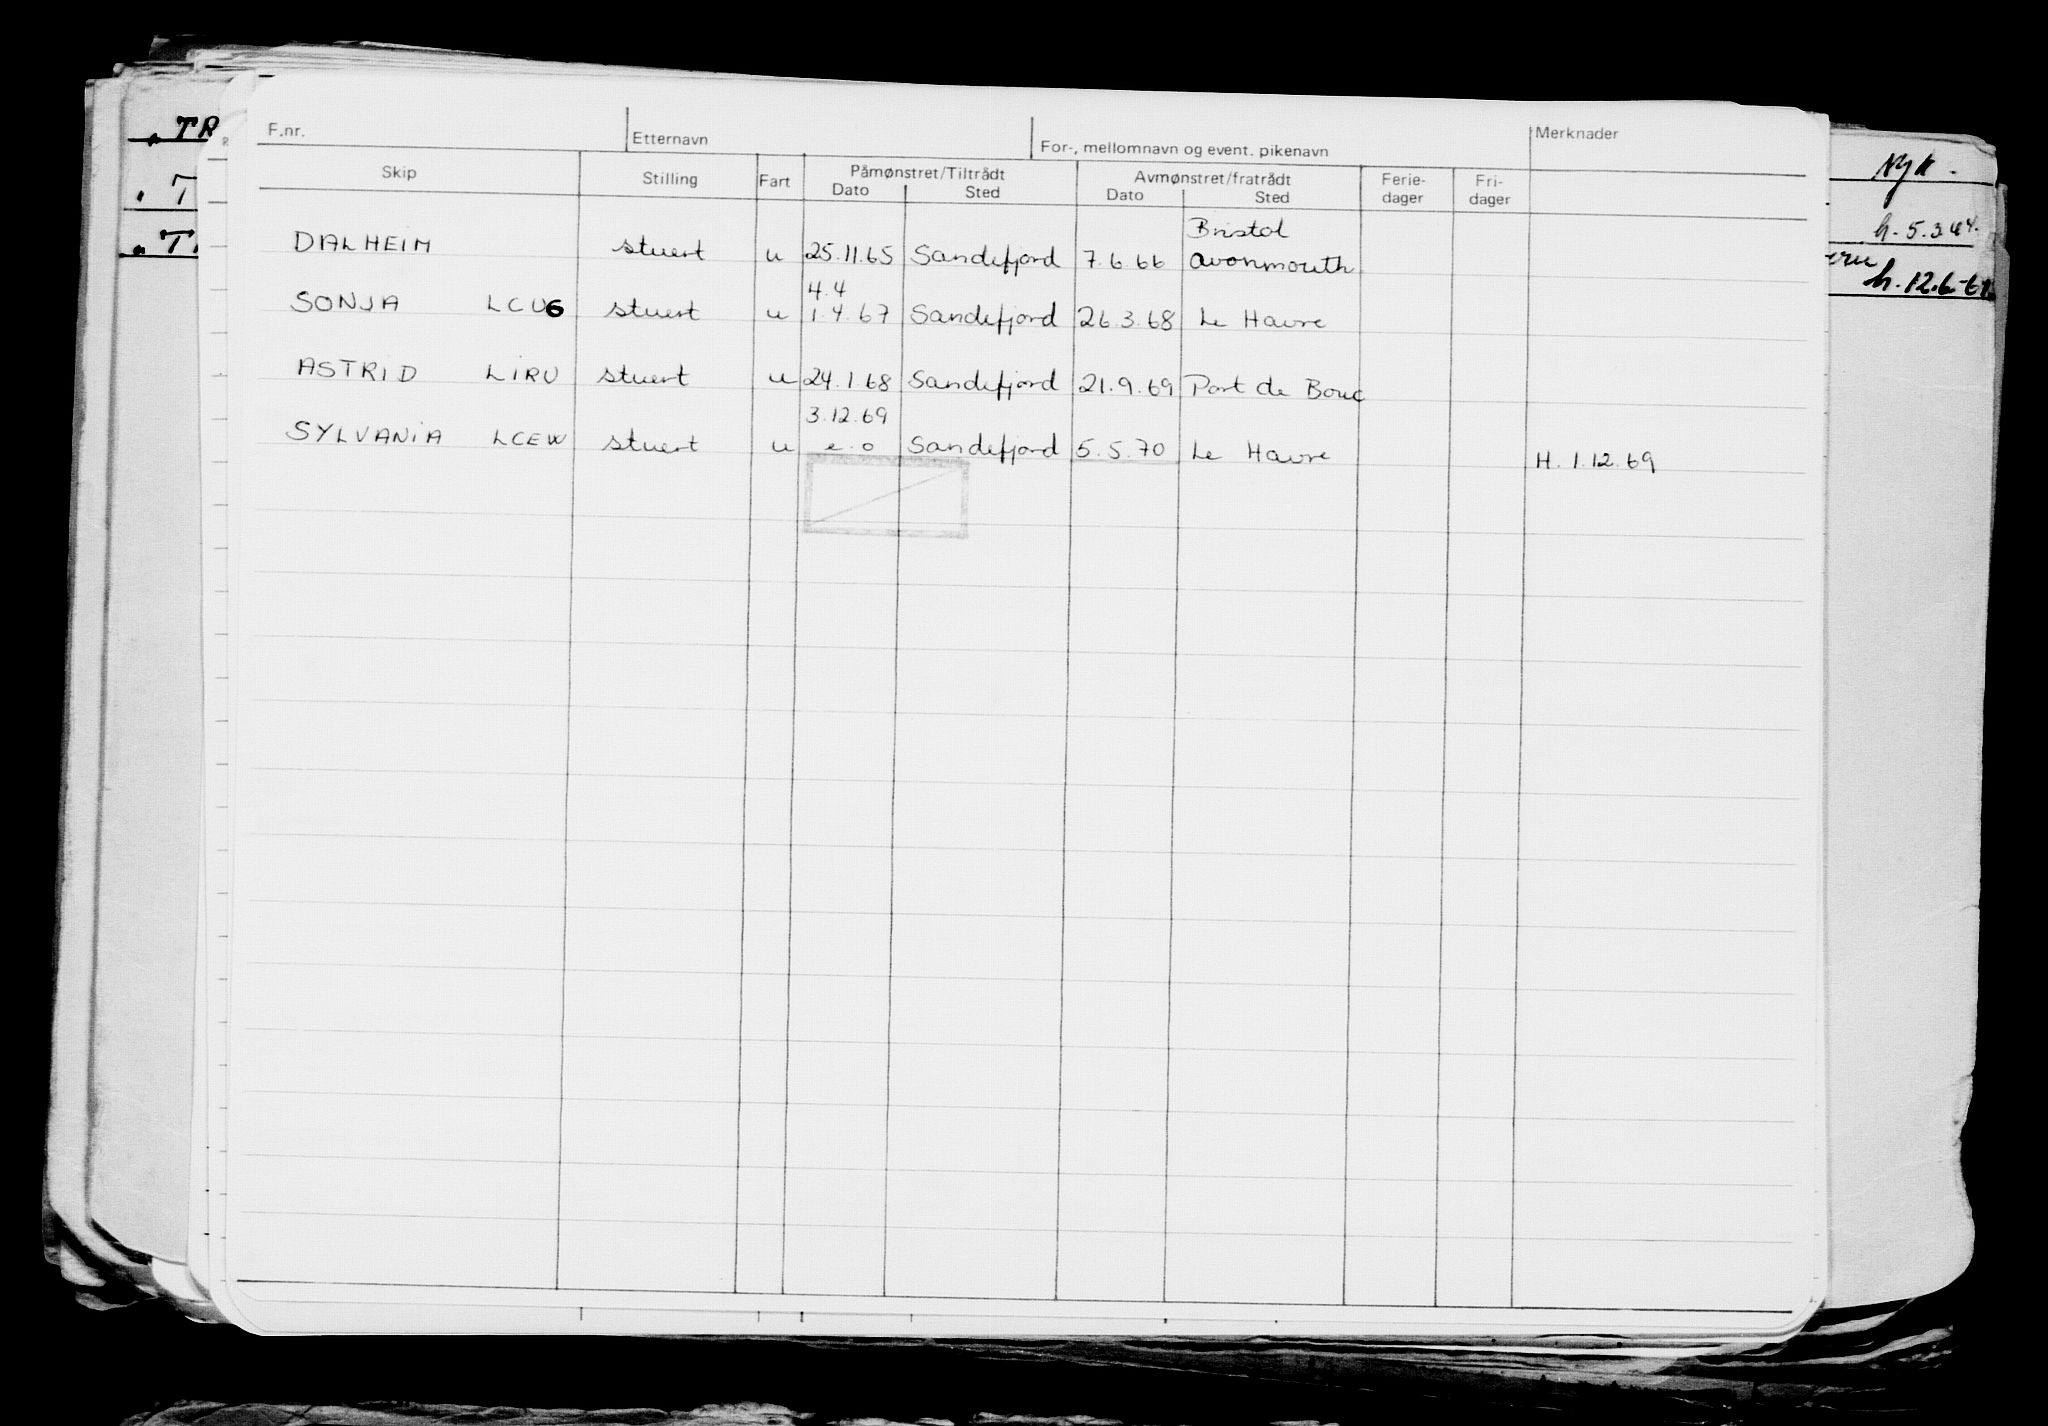 F.nr. Etternavn For-, mellomnavn og event. pikenavn Merknader
Skip Stilling Fart Påmønstret/Tiltrådt Avmønstret/fratrådt Ferie- Fri-
Dato Sted Dato Sted dager dager
Bristol
DALHEIM stuert u 25.11.65 Sandefjord 7.6.66 Avonmouth
4.4
SONJA LCUG stuert u 1.4.67 Sandefjord 26.3.68 Le Havre
ASTRID LIRU stuert u 24.1.68 Sandefjord 21.9.69 Port de Bouc
3.12.69
SYLVANIA LCEW stuert u e.o Sandefjord 5.5.70 Le Havre H. 1.12.69
TR
T
Nyk.
h. 12.6.